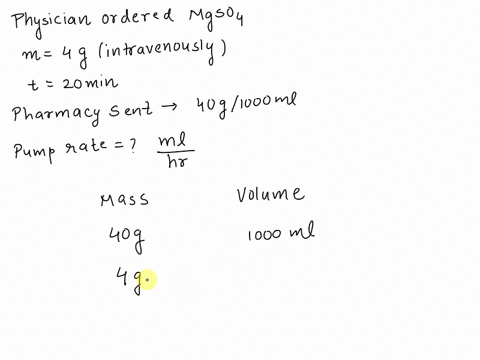 Physician ordered MgSO4
m = 4 g (intravenously)
t = 20 min
Pharmacy sent → 40g/1000 ml
Pump rate = ? ml/hr
Mass Volume
40g 1000 ml
4g